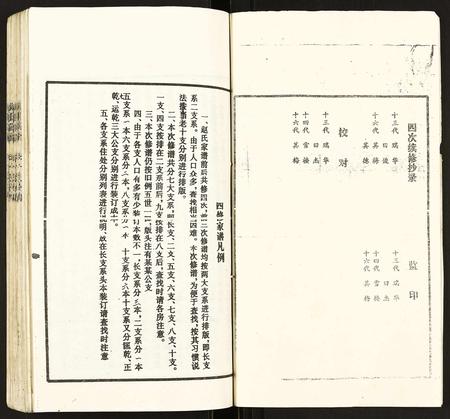 四次续修抄录
十三代 瑞华
曰俊
十六代 其梅
其德
校对
十三代 瑞华
曰杰
十四代 雪梭
十六代 其梅
监印
十三代 瑞华
曰杰
十四代 雪梭
十六代 其梅
四修家谱凡例
一、赵氏家谱前后共修四次，前三次修谱均按两大支系进行排版，即长支
系二支系。由于人口众多，查找相当困难。本次修谱，为便于查找，按其习惯说
法按事老十支分别进行排版。
二、本次修谱共分七大支系，即长支、二支、五支、六支、七支、八支、十支。
一支、四支按排在二支系前后，九支按排在八支后，查找时请各房注意。
三、本次修谱仍按旧例五世一
版头注有某某公支
四、由于各支人口有多有少装订本数不一，长支系分
本，二支系分一本
五支系一本六支系分二本，八支系分
本十支系分六本十支系又分
乾、正
乾、运乾三大公支分别进行装订成
五、各支系住处分别列表进行说明，放在长支系头本装订请查找时注意